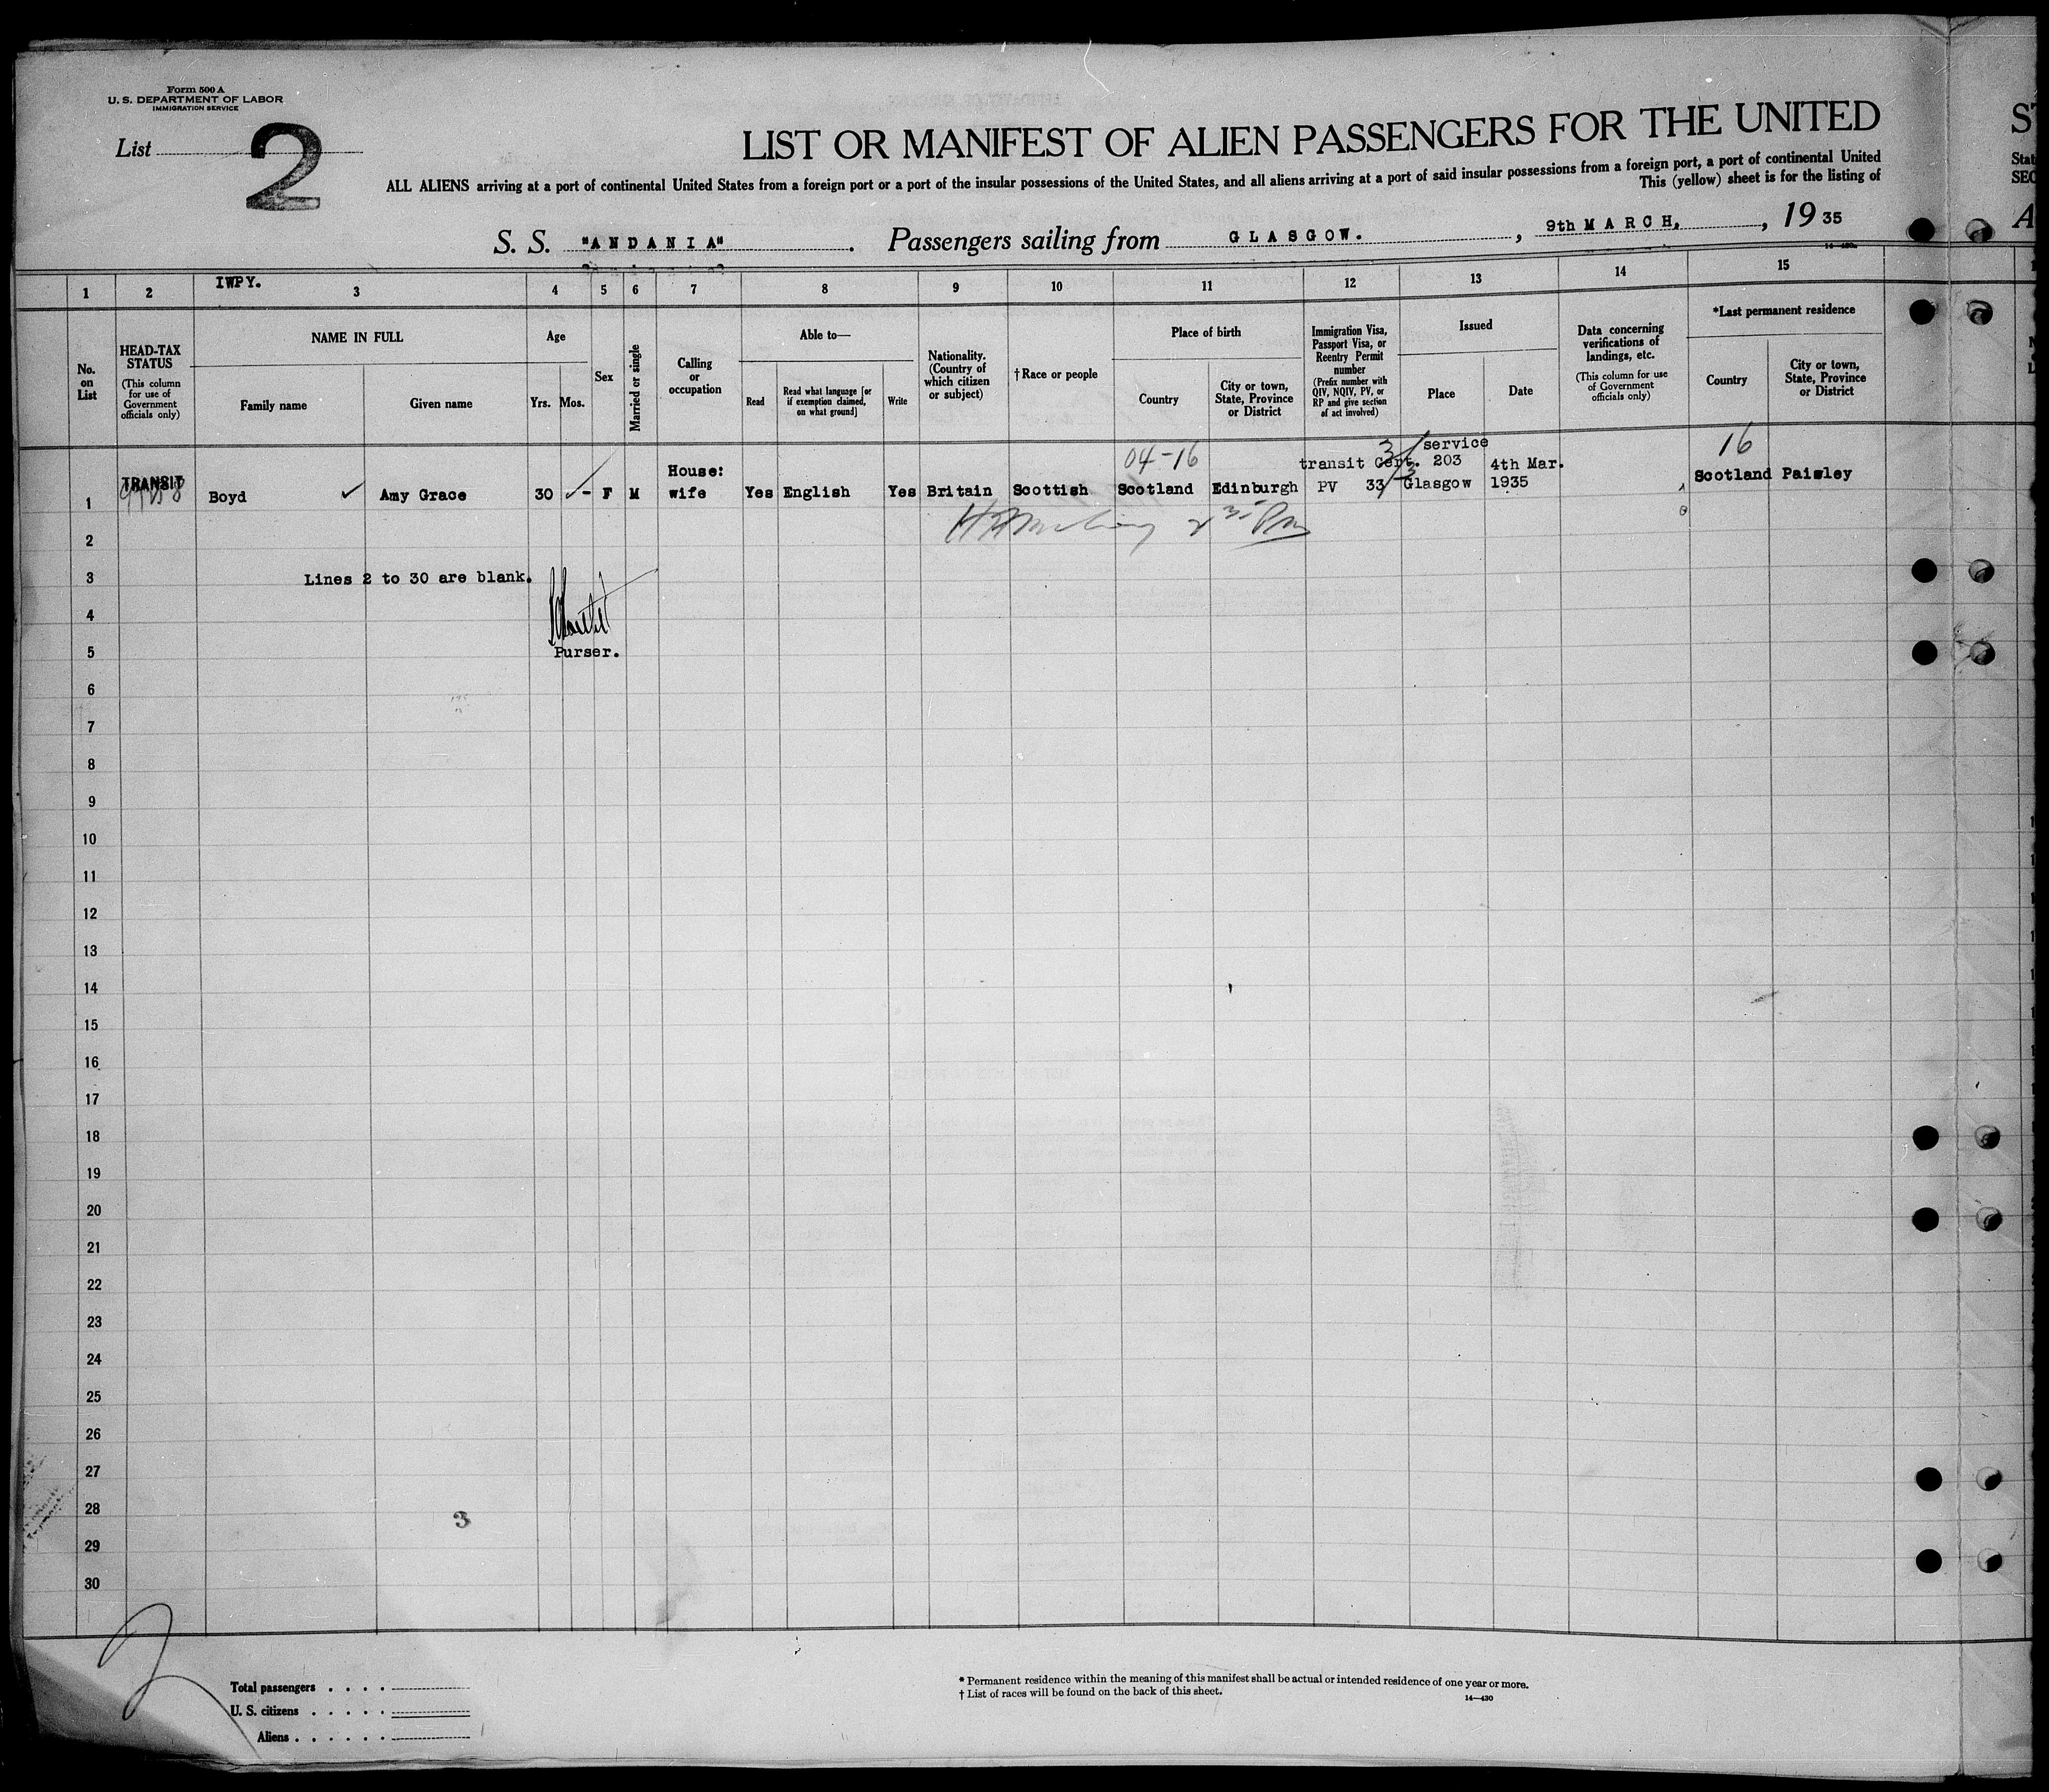 Form 500 A
U. S. DEPARTMENT OF LABOR
IMMIGRATION SERVICE
List 2
LIST OR MANIFEST OF ALIEN PASSENGERS FOR THE UNITED
ALL ALIENS arriving at a port of continental United States from a foreign port or a port of the insular possessions of the United States, and all aliens arriving at a port of said insular possessions from a foreign port, a port of continental United
This (yellow) sheet is for the listing of
S. S. "ANDANIA". Passengers sailing from GLASGOW., 9th MARCH, , 19 35
IWPY.
1 2 3 4 5 6 7 8 9 10 11 12 13 14 15
No. on List
HEAD-TAX STATUS
(This column for use of Government officials only)
NAME IN FULL
Family name
Given name
Age
Yrs. Mos.
Sex
Married or single
Calling or occupation
Able to—
Read
Read what language [or if exemption claimed, on what ground]
Write
Nationality. (Country of which citizen or subject)
†Race or people
Place of birth
Country
City or town, State, Province or District
Immigration Visa, Passport Visa, or Reentry Permit number
(Prefix number with QIV, NQIV, PV, or RP and give section of act involved)
Issued
Place
Date
Data concerning verifications of landings, etc.
(This column for use of Government officials only)
*Last permanent residence
Country
City or town, State, Province or District
04-16 service 16
TRANSIT House: transit Cert. 203 4th Mar.
1 Boyd ✓ Amy Grace 30 ✓ - F M wife Yes English Yes Britain Scottish Scotland Edinburgh PV 33 Glasgow 1935 Scotland Paisley
2
3 Lines 2 to 30 are blank.
4
5 Purser.
6
7
8
9
10
11
12
13
14
15
16
17
18
19
20
21
22
23
24
25
26
27
28 3
29
30
2
Total passengers . . . .
U. S. citizens . . . . .
Aliens . . . . . .
* Permanent residence within the meaning of this manifest shall be actual or intended residence of one year or more.
† List of races will be found on the back of this sheet.
14—430